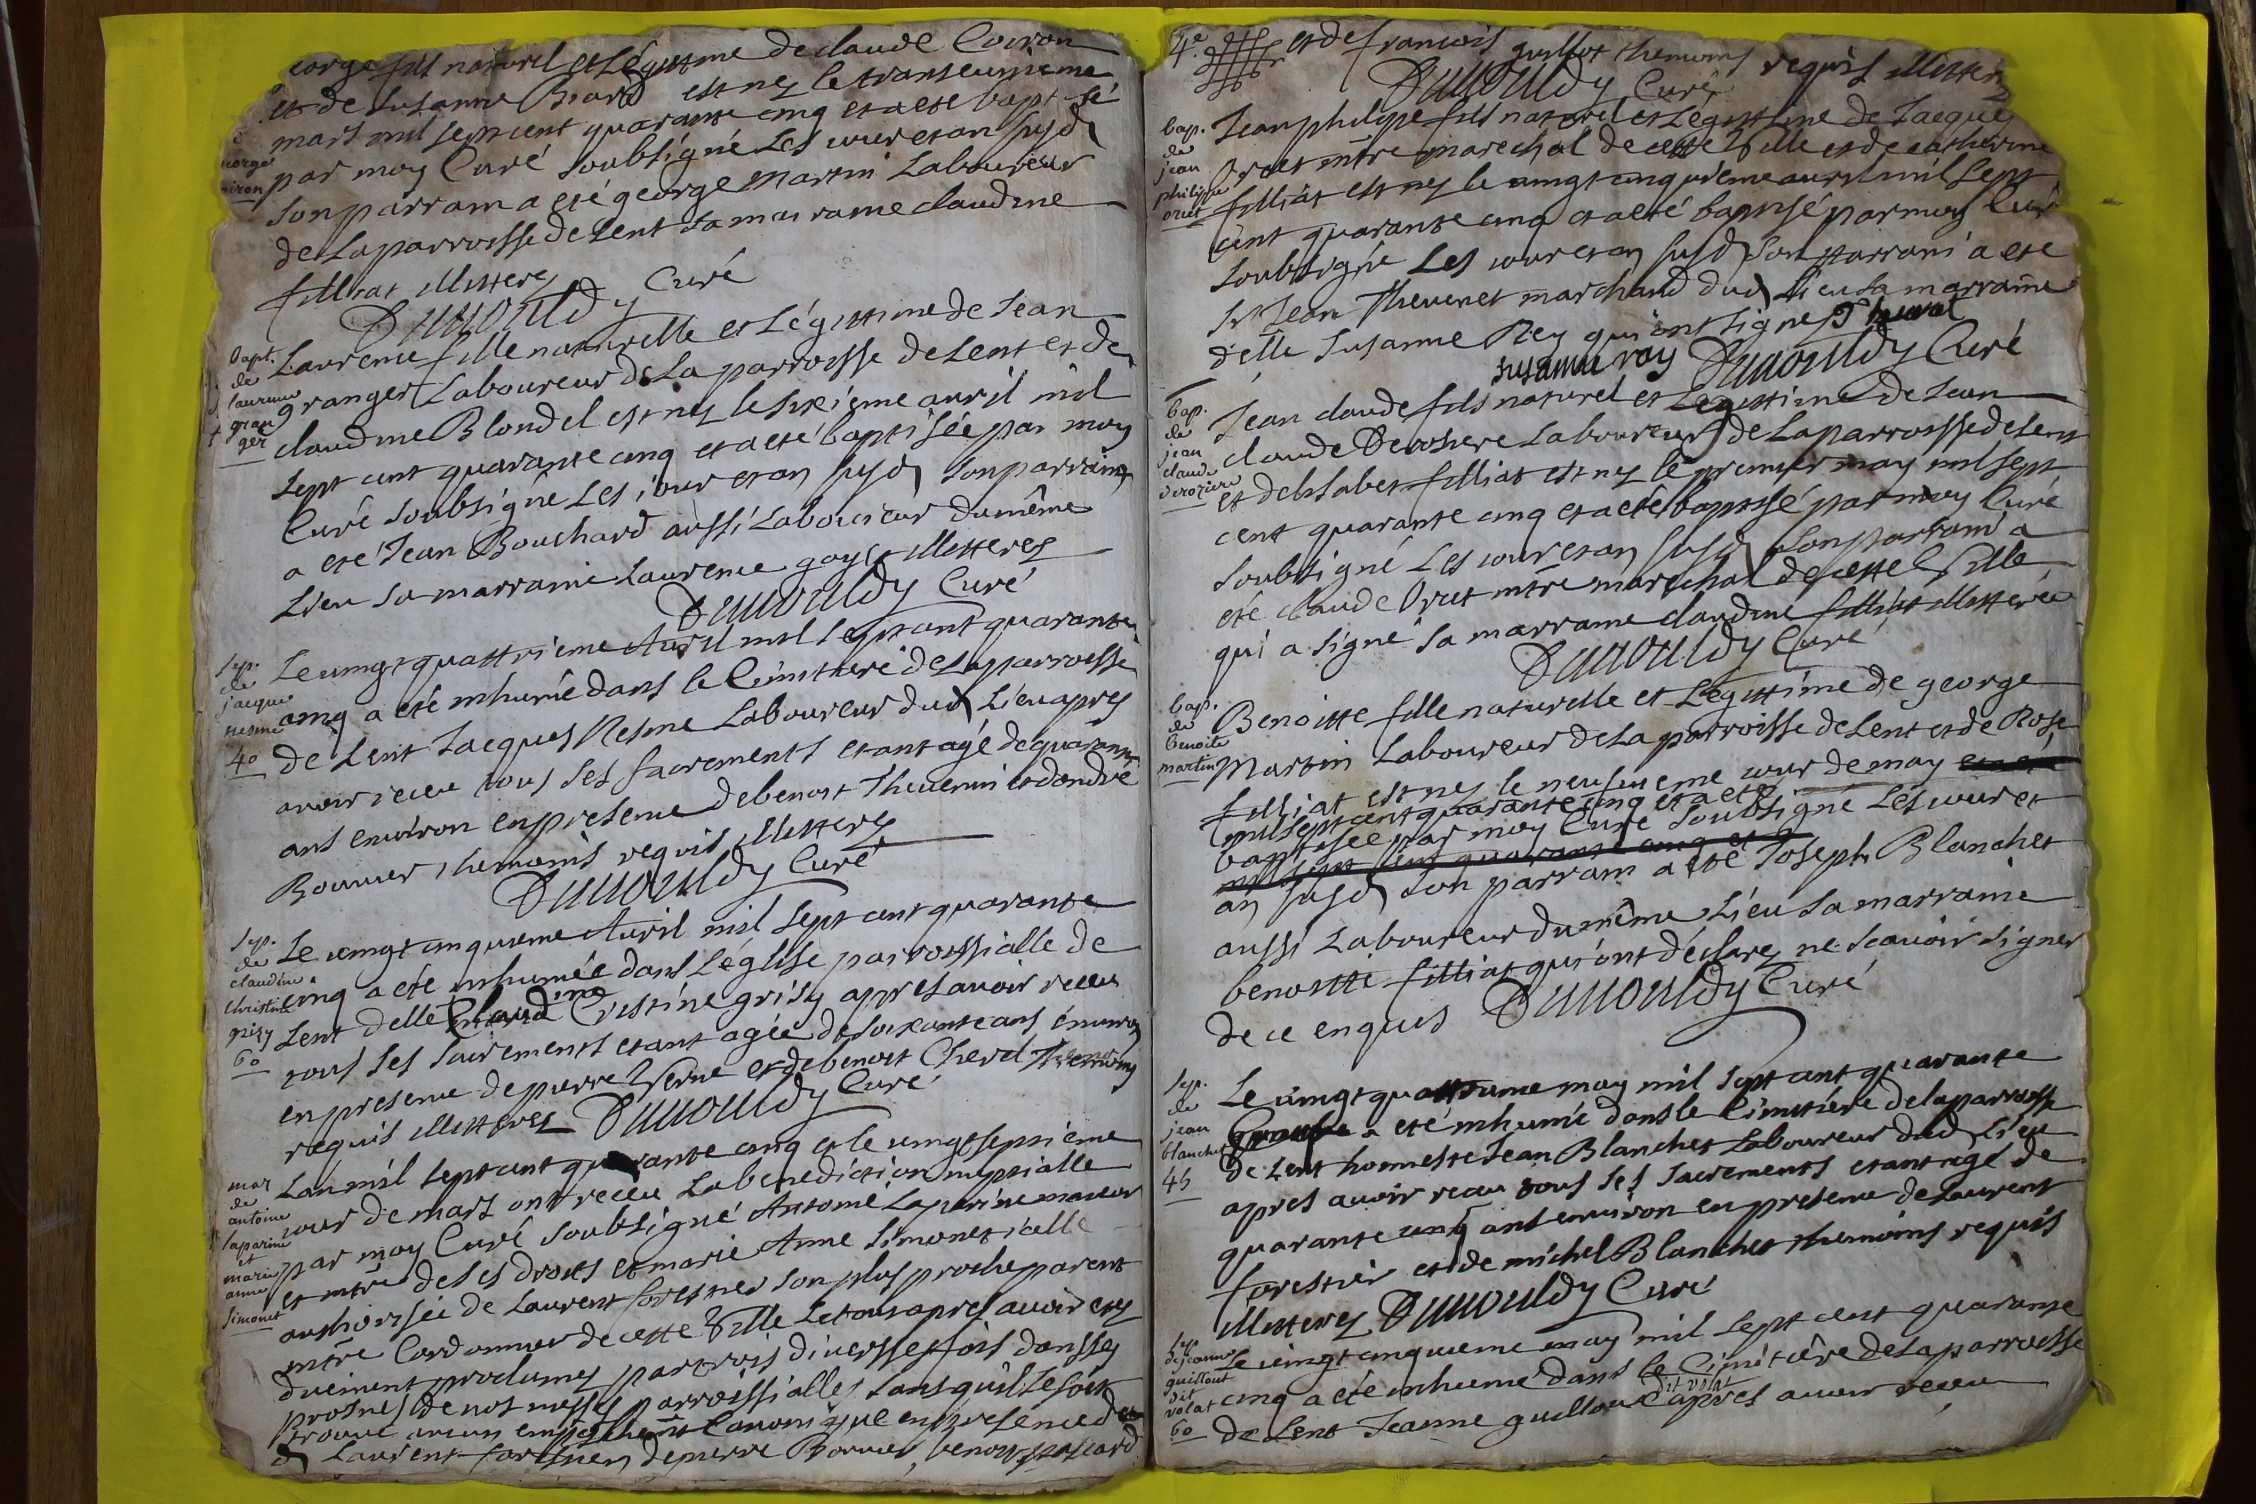 eorge fils naturel et Légittime de claude Coiron
et de Susanne Beard est né le trenteunieme
mars mil sept cent quarante cinq et a eté baptisé
par moy Curé Soubsigné Les jour et an susd
Son parrain a eté george Martin Laboureur
de La parroisse de Lent sa marraine claudine
filliat Illitterés
Dumouldy Curé
bapt.
de
laurence
gran
ger
Laurence fille naturelle et Légittime de Jean
granger Laboureur de La parroisse de Lent et de
claudine Blondel est né le sixième avril mil
sept cent quarante cinq et a eté baptisée par moy
Curé soubsigné Les jour et an susd son parrain
a eté Jean Bouchard aussi Laboureur du même
Lieu sa marraine Laurence goyet Illitterés
Dumouldy Curé
sep.
de
jacque
resme
40
Le vingt quattrieme Avril mil sept cent quarante
cinq a eté inhumé dans le Cimithere de La parroisse
de Lent Jacques Resme Laboureur dud Lieu apres
avoir receu tous ses sacrements etant agé de quarante
ans environ en presence de benoit Thevenin et dandré
Bouvier themoins requis Illitterés
Dumouldy Curé
sep.
de
claudine
christine
grisy
60
Le vingt cinquieme Avril mil sept cent quarante
cinq a eté inhumée dans L'église parroissialle de
Lent delle Claudine Cristine grisy apres avoir receu
tous ses sacrements etant agée de soixante ans environ
en presence de pierre Verne et de benoit Cherel Themoins
requis Illitterés Dumouldy Curé
mar
de
antoine
laparine
et
marie
anne
simonet
Lan mil sept cent quarante cinq et le vingt septième
jour de mars ont receu La benediction nuptialle
par moy Curé soubsigné Antoine Laparine majeur
et mtre de ses droits et marie Anne Simonet icelle
authorisée de Laurent forestier son plus proche parent
mtre Cordonnier de cette Ville Le tout apres avoir eté
duement proclamés par trois diversses fois dans les
prosnes de nos messes parroissialles sans qu'il se soit
trouvé aucun empêchement Canonique en presence de
d Laurent forestier de pierre Bouvier, benoit
4e
et de francois guillot themoins requis Illitterés
Dumouldy Curé
bap.
de
jean
philippe
orut
Jean philippe fils naturel et Légittime de Jacque
Orut mtre marechal de cette Ville et de catherine
filliat est né le vingt cinquième avril mil sept
cent quarante cinq et a eté baptisé par moy Curé
soubsigné Les jour et an susd son parrain a eté
Sr Jean Thevenet marchand dud Lieu sa marraine
delle Susanne Rey qui ont signés Thevenet
susanne ray Dumouldy Curé
bap.
de
jean
claude
derozier
Jean claude fils naturel et Légittime de Jean
claude Derosiere Laboureur de La parroisse de Lent
et delisabet filliat est né le premier may mil sept
cent quarante cinq et a eté baptisé par moy Curé
soubsigné Les jour et an susd son parrain a
eté claude Orut mtre marechal de cette Ville
qui a signé sa marraine claudine filliat Illitterée
Dumouldy Curé
bap.
de
benoite
martin
Benoitte fille naturelle et Légittime de george
Martin Laboureur de La parroisse de Lent et de Rose
filliat est né le neufvieme jour de may
mil sept cent quarante cinq et a eté
baptisée par moy Curé soubsigné Les jour et
mil sept cent quarante cinq et
an susd son parrain a eté Joseph Blanchet
aussi Laboureur du même Lieu sa marraine
benoitte filliat qui ont déclarez ne scavoir signer
de ce enquis Dumouldy Curé
sep.
de
jean
blanchet
45
Le vingt quattrieme may mil sept cent quarante
a eté inhumé dans le Cimitiére de la parroisse
de Lent honneste Jean Blanchet Laboureur dud Lieu
apres avoir receu tous ses sacrements etant agé de
quarante cinq ans environ en presence de Laurent
forestier et de michel Blanchet themoins requis
Illitterés Dumouldy Curé
sep
de jeanne
guillout
dit
volat
60
Le vingt cinquieme may mil sept cent quarante
cinq a eté inhumé dans le Cimitiére de La parroisse
dit volat
de Lent Jeanne guillout apres avoir receu